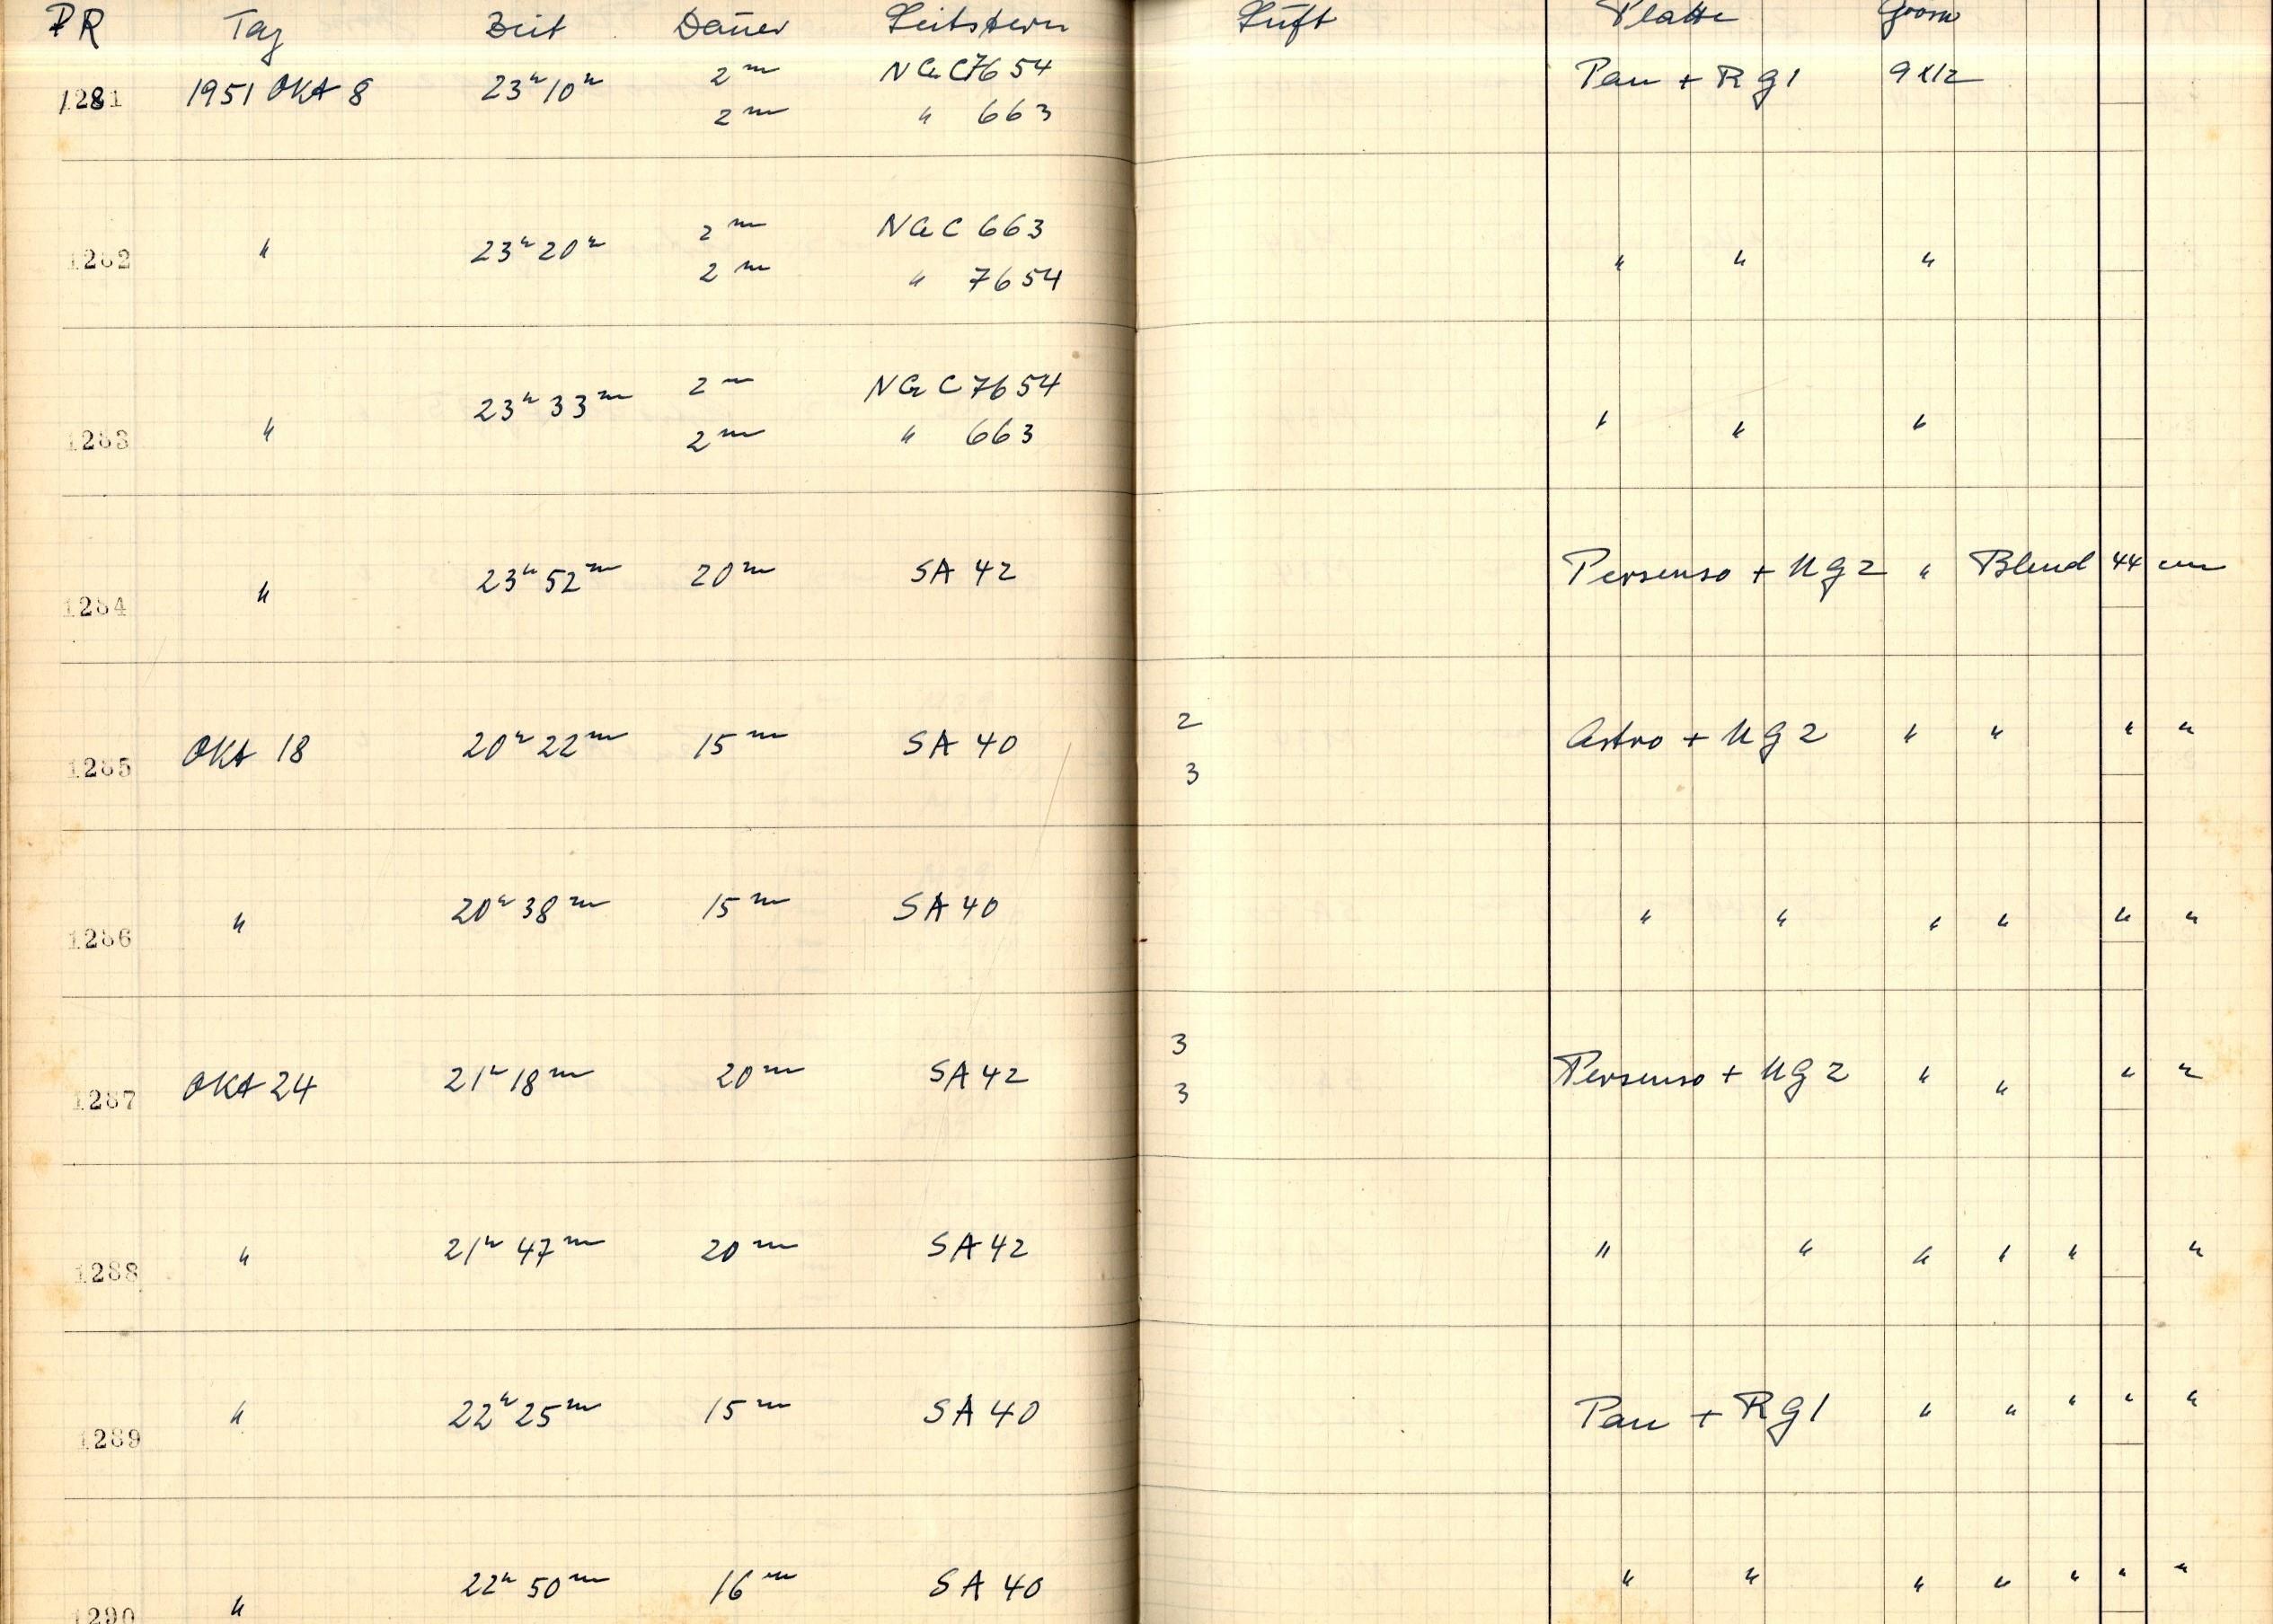 PR Tag Zeit Dauer Leitstern Luft Platte Form
1281 1951 Okt 8 23h 10m 2m NGC 7654 Pan + Rg1 9x12
2m " 663
1282 " 23h 20m 2m NGC 663 " " "
2m " 7654
1283 " 23h 33m 2m NGC 7654 " " "
2m " 663
1284 " 23h 52m 20m SA 42 Persenso + Ug2 " Blend 44 cm
1285 Okt 18 20h 22m 15m SA 40 2 Astro + Ug2 " " " "
3
1286 " 20h 38m 15m SA 40 " " " " " "
1287 Okt 24 21h 18m 20m SA 42 3 Persenso + Ug2 " " " "
3
1288 " 21h 47m 20m SA 42 " " " " " "
1289 " 22h 25m 15m SA 40 Pan + Rg1 " " " " "
1290 " 22h 50m 16m SA 40 " " " " " " "